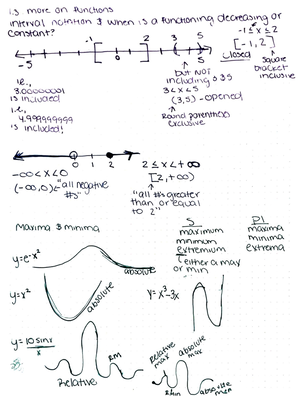 1.3 more on functions
interval notation & when is a functioning decreasing or
constant?
-1 ≤ x ≤ 2
[-1, 2]
closed
square
bracket
inclusive
-1
2
3
5
-5
0
5
but NOT
including 3 & 5
3 < x < 5
(3,5) - opened
Round parenthesis
exclusive
i.e.,
3.00000001
is included
i.e.,
4.999999999
is included!
0
1
2
-∞ < x < 0
(-∞, 0) = "all negative
#s"
2 ≤ x < +∞
[2, +∞)
"all #s greater
than or equal
to 2"
Maxima & minima
S
maximum
minimum
extremum
(either a max
or min
Pl
maxima
minima
extrema
y=e-x²
absolute
y=x²
absolute
y=x³-3x
y=10sinx
x
Relative
RM
Relative
max
absolute
max
absolute
min